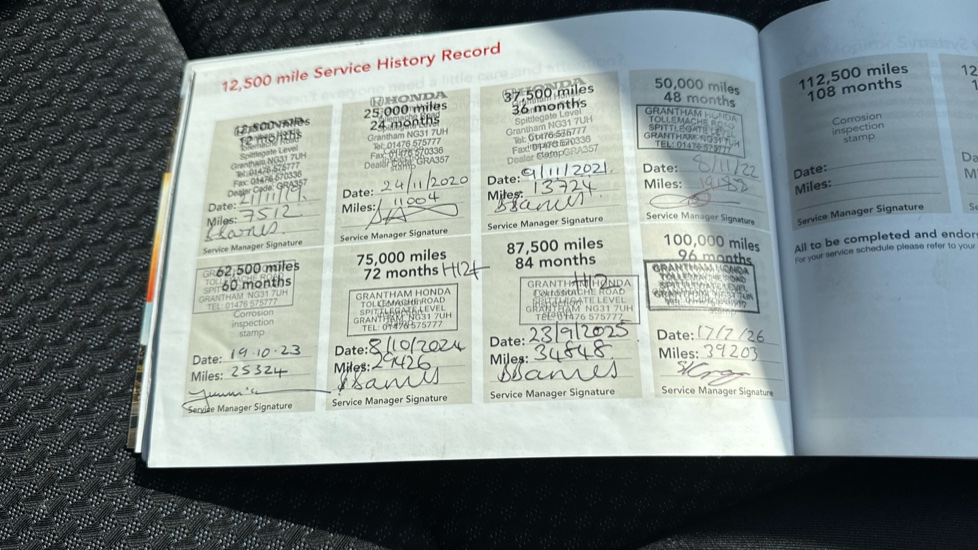 12,500 mile Service History Record
12,500 miles
12 months
Spittlegate Level
Grantham NG31 7UH
Tel: 01476 575777
Fax: 01476 570336
Dealer Code: GRA357
Date: 21/11/19.
Miles: 7512
Service Manager Signature
HONDA
25,000 miles
24 months
Spittlegate Level
Grantham NG31 7UH
Tel: 01476 575777
Fax: 01476 570336
Dealer Code: GRA357
Date: 24/11/2020
Miles: 11004
Service Manager Signature
HONDA
37,500 miles
36 months
Spittlegate Level
Grantham NG31 7UH
Tel: 01476 575777
Fax: 01476 570336
Dealer GRA357
Date: 9/11/2021
Miles: 13724
Service Manager Signature
50,000 miles
48 months
GRANTHAM HONDA
TOLLEMACHE ROAD
SPITTLEGATE LEVEL
GRANTHAM NG31 7UH
TEL: 01476 575777
Date: 8/11/22
Miles:
Service Manager Signature
62,500 miles
60 months
GRANTHAM NG31 7UH
TEL: 01476 575777
Corrosion
inspection
stamp
Date: 19.10.23
Miles: 25324
Service Manager Signature
75,000 miles
72 months
GRANTHAM HONDA
TOLLEMACHE ROAD
SPITTLEGATE LEVEL
GRANTHAM NG31 7UH
TEL: 01476 575777
Date: 8/10/2024
Miles: 29426
Service Manager Signature
87,500 miles
84 months
GRANTHAM HONDA
TOLLEMACHE ROAD
SPITTLEGATE LEVEL
GRANTHAM NG31 7UH
TEL: 01476 575777
Date: 23/9/2025
Miles: 34848
Service Manager Signature
100,000 miles
96 months
GRANTHAM HONDA
Date: 17/7/26
Miles: 39203
Service Manager Signature
112,500 miles
108 months
Corrosion
inspection
stamp
Date:
Miles:
Service Manager Signature
All to be completed and endor
For your service schedule please refer to your
12
Da
M
Se